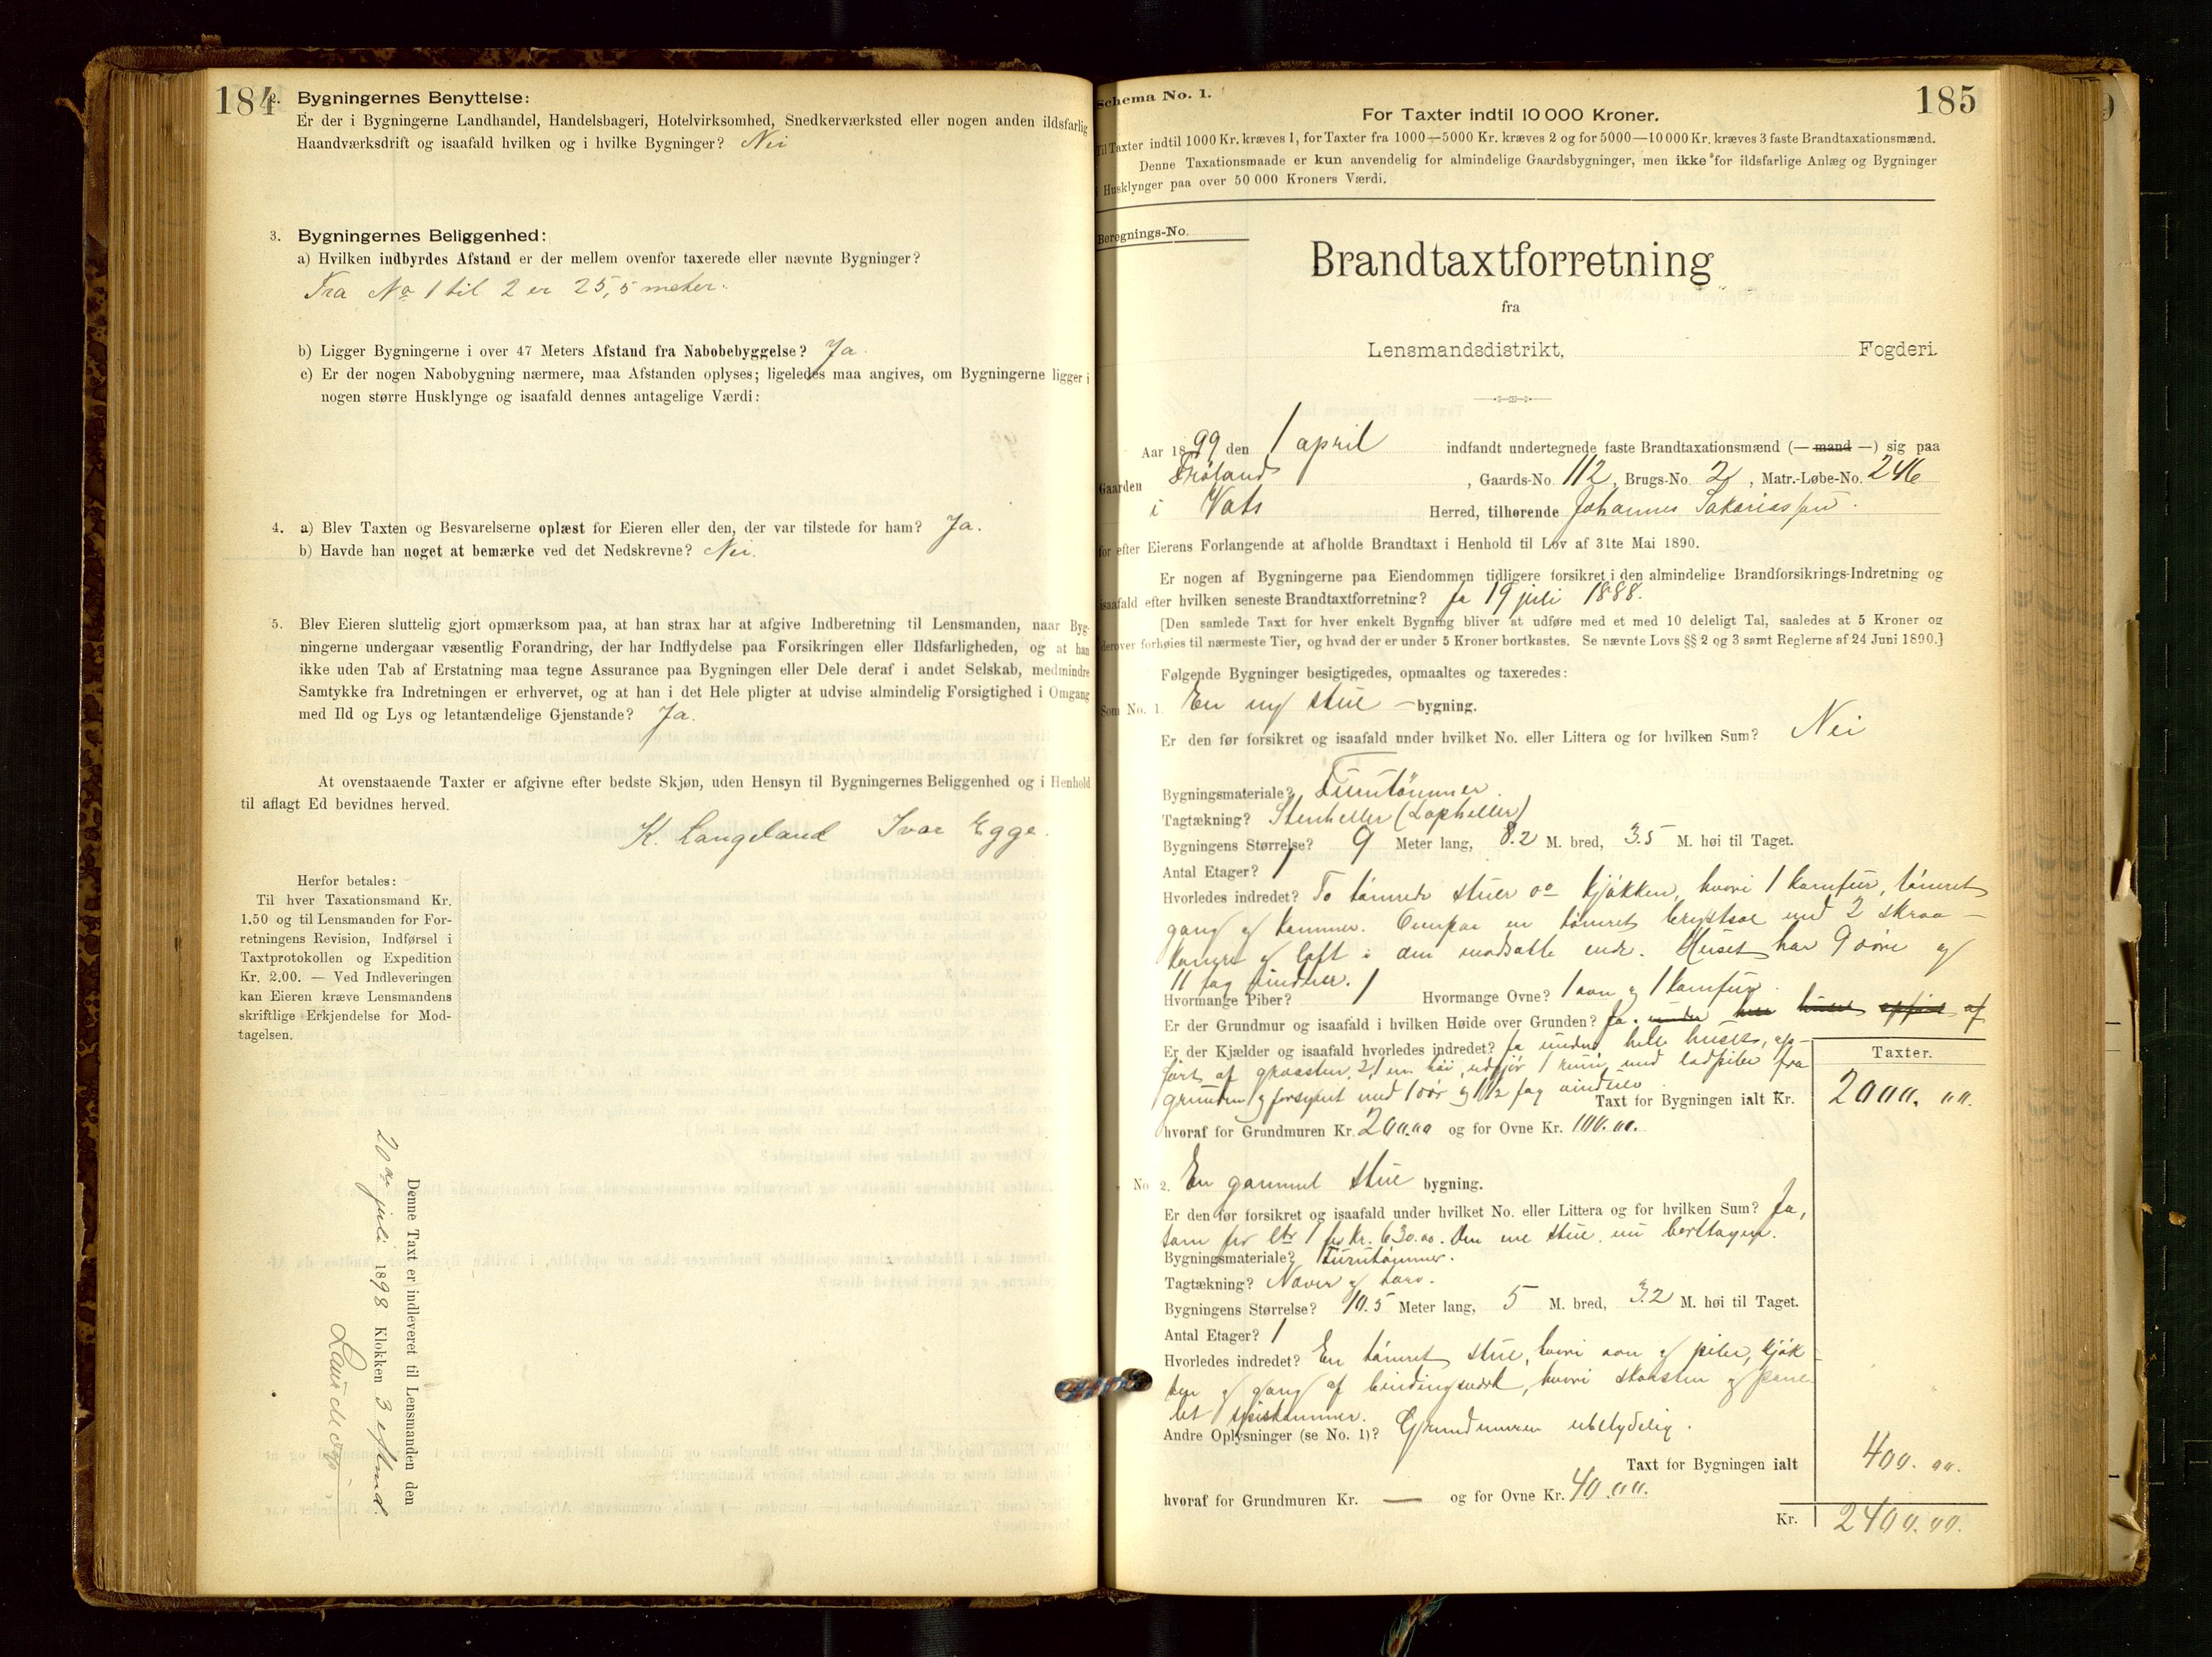 184
2. Bygningernes Benyttelse:
Er der i Bygningerne Landhandel, Handelsbageri, Hotelvirksomhed, Snedkerværksted eller nogen anden ildsfarlig
Haandværksdrift og isaafald hvilken og i hvilke Bygninger? Nei
3. Bygningernes Beliggenhed:
a) Hvilken indbyrdes Afstand er der mellem ovenfor taxerede eller nævnte Bygninger?
Fra No 1 til 2 er 25,5 meter.
b) Ligger Bygningerne i over 47 Meters Afstand fra Nabobebyggelse? Ja.
c) Er der nogen Nabobygning nærmere, maa Afstanden oplyses; ligeledes maa angives, om Bygningerne ligger i
nogen større Husklynge og isaafald dennes antagelige Værdi:
4. a) Blev Taxten og Besvarelserne oplæst for Eieren eller den, der var tilstede for ham? Ja.
b) Havde han noget at bemærke ved det Nedskrevne? Nei.
5. Blev Eieren sluttelig gjort opmærksom paa, at han strax har at afgive Indberetning til Lensmanden, naar Byg-
ningerne undergaar væsentlig Forandring, der har Indflydelse paa Forsikringen eller Ildsfarligheden, og at han
ikke uden Tab af Erstatning maa tegne Assurance paa Bygningen eller Dele deraf i andet Selskab, medmindre
Samtykke fra Indretningen er erhvervet, og at han i det Hele pligter at udvise almindelig Forsigtighed i Omgang
med Ild og Lys og letantændelige Gjenstande? Ja.
At ovenstaaende Taxter er afgivne efter bedste Skjøn, uden Hensyn til Bygningernes Beliggenhed og i Henhold
til aflagt Ed bevidnes herved.
K. Langeland Ivar Egge.
Herfor betales:
Til hver Taxationsmand Kr.
1.50 og til Lensmanden for For-
retningens Revision, Indførsel i
Taxtprotokollen og Expedition
Kr. 2.00. — Ved Indleveringen
kan Eieren kræve Lensmandens
skriftlige Erkjendelse for Mod-
tagelsen.
Denne Taxt er indleveret til Lensmanden den
20de juli 1898 Klokken 3 eftmd.
Schema No. 1.
185
For Taxter indtil 10 000 Kroner.
Til Taxter indtil 1000 Kr. kræves 1, for Taxter fra 1000—5000 Kr. kræves 2 og for 5000—10 000 Kr. kræves 3 faste Brandtaxationsmænd.
Denne Taxationsmaade er kun anvendelig for almindelige Gaardsbygninger, men ikke for ildsfarlige Anlæg og Bygninger
i Husklynger paa over 50 000 Kroners Værdi.
Beregnings-No.
Brandtaxtforretning
fra
Lensmandsdistrikt, Fogderi.
Aar 1899 den 1 april indfandt undertegnede faste Brandtaxationsmænd (— mand —) sig paa
Gaarden Frøland, Gaards-No. 112, Brugs-No. 2, Matr.-Løbe-No. 246
i Vats Herred, tilhørende Johannes Sakariassøn.
for efter Eierens Forlangende at afholde Brandtaxt i Henhold til Lov af 31te Mai 1890.
Er nogen af Bygningerne paa Eiendommen tidligere forsikret i den almindelige Brandforsikrings-Indretning og
isaafald efter hvilken seneste Brandtaxtforretning? Ja 19 juli 1888.
[Den samlede Taxt for hver enkelt Bygning bliver at udføre med et med 10 deleligt Tal, saaledes at 5 Kroner og
derover forhøies til nærmeste Tier, og hvad der er under 5 Kroner bortkastes. Se nævnte Lovs §§ 2 og 3 samt Reglerne af 24 Juni 1890.]
Følgende Bygninger besigtigedes, opmaaltes og taxeredes:
Som No. 1. En ny stue-bygning.
Er den før forsikret og isaafald under hvilket No. eller Littera og for hvilken Sum? Nei
Bygningsmateriale? Furutømmer.
Tagtækning? Stenheller (Lapheller)
Bygningens Størrelse? 9 Meter lang, 8.2 M. bred, 3.5 M. høi til Taget.
Antal Etager? 1
Hvorledes indredet? To tømrede stuer og kjøkken, hvori 1 komfur, tømret
gang og kammer. Ovenpaa en tømret brystsal med 2 skraa-
kamre og loft i den modsatte ende. Huset har 9 døre og
11 fag vinduer.
Hvormange Piber? 1 Hvormange Ovne? 1 ovn og 1 komfur.
Er der Grundmur og isaafald i hvilken Høide over Grunden? Ja. under hele huset opført af
Er der Kjælder og isaafald hvorledes indredet? Ja under hele huset, op-
ført af graasten, 2,1 m høi, udgjør 1 rum, med ladpiber fra
grunden og forsynet med 1 dør og 1 1/2 fag vinduer.
Taxter.
Taxt for Bygningen ialt Kr. 2000.00.
hvoraf for Grundmuren Kr. 200.00 og for Ovne Kr. 100.00.
No. 2. En gammel stue bygning.
Er den før forsikret og isaafald under hvilket No. eller Littera og for hvilken Sum? Ja,
som før Ltr 1 for Kr. 630.00. Den ene stue nu borttagen.
Bygningsmateriale? Furutømmer.
Tagtækning? Næver og torv.
Bygningens Størrelse? 10.5 Meter lang, 5 M. bred, 3.2 M. høi til Taget.
Antal Etager? 1
Hvorledes indredet? En tømret stue, hvori ovn og pibe, kjøk-
ken og gang af bindingsverk, hvori skorsten og pane-
let spiskammer.
Andre Oplysninger (se No. 1)? Grundmuren ubetydelig.
Taxt for Bygningen ialt 400.00.
hvoraf for Grundmuren Kr. — og for Ovne Kr. 40.00.
Kr. 2400.00.